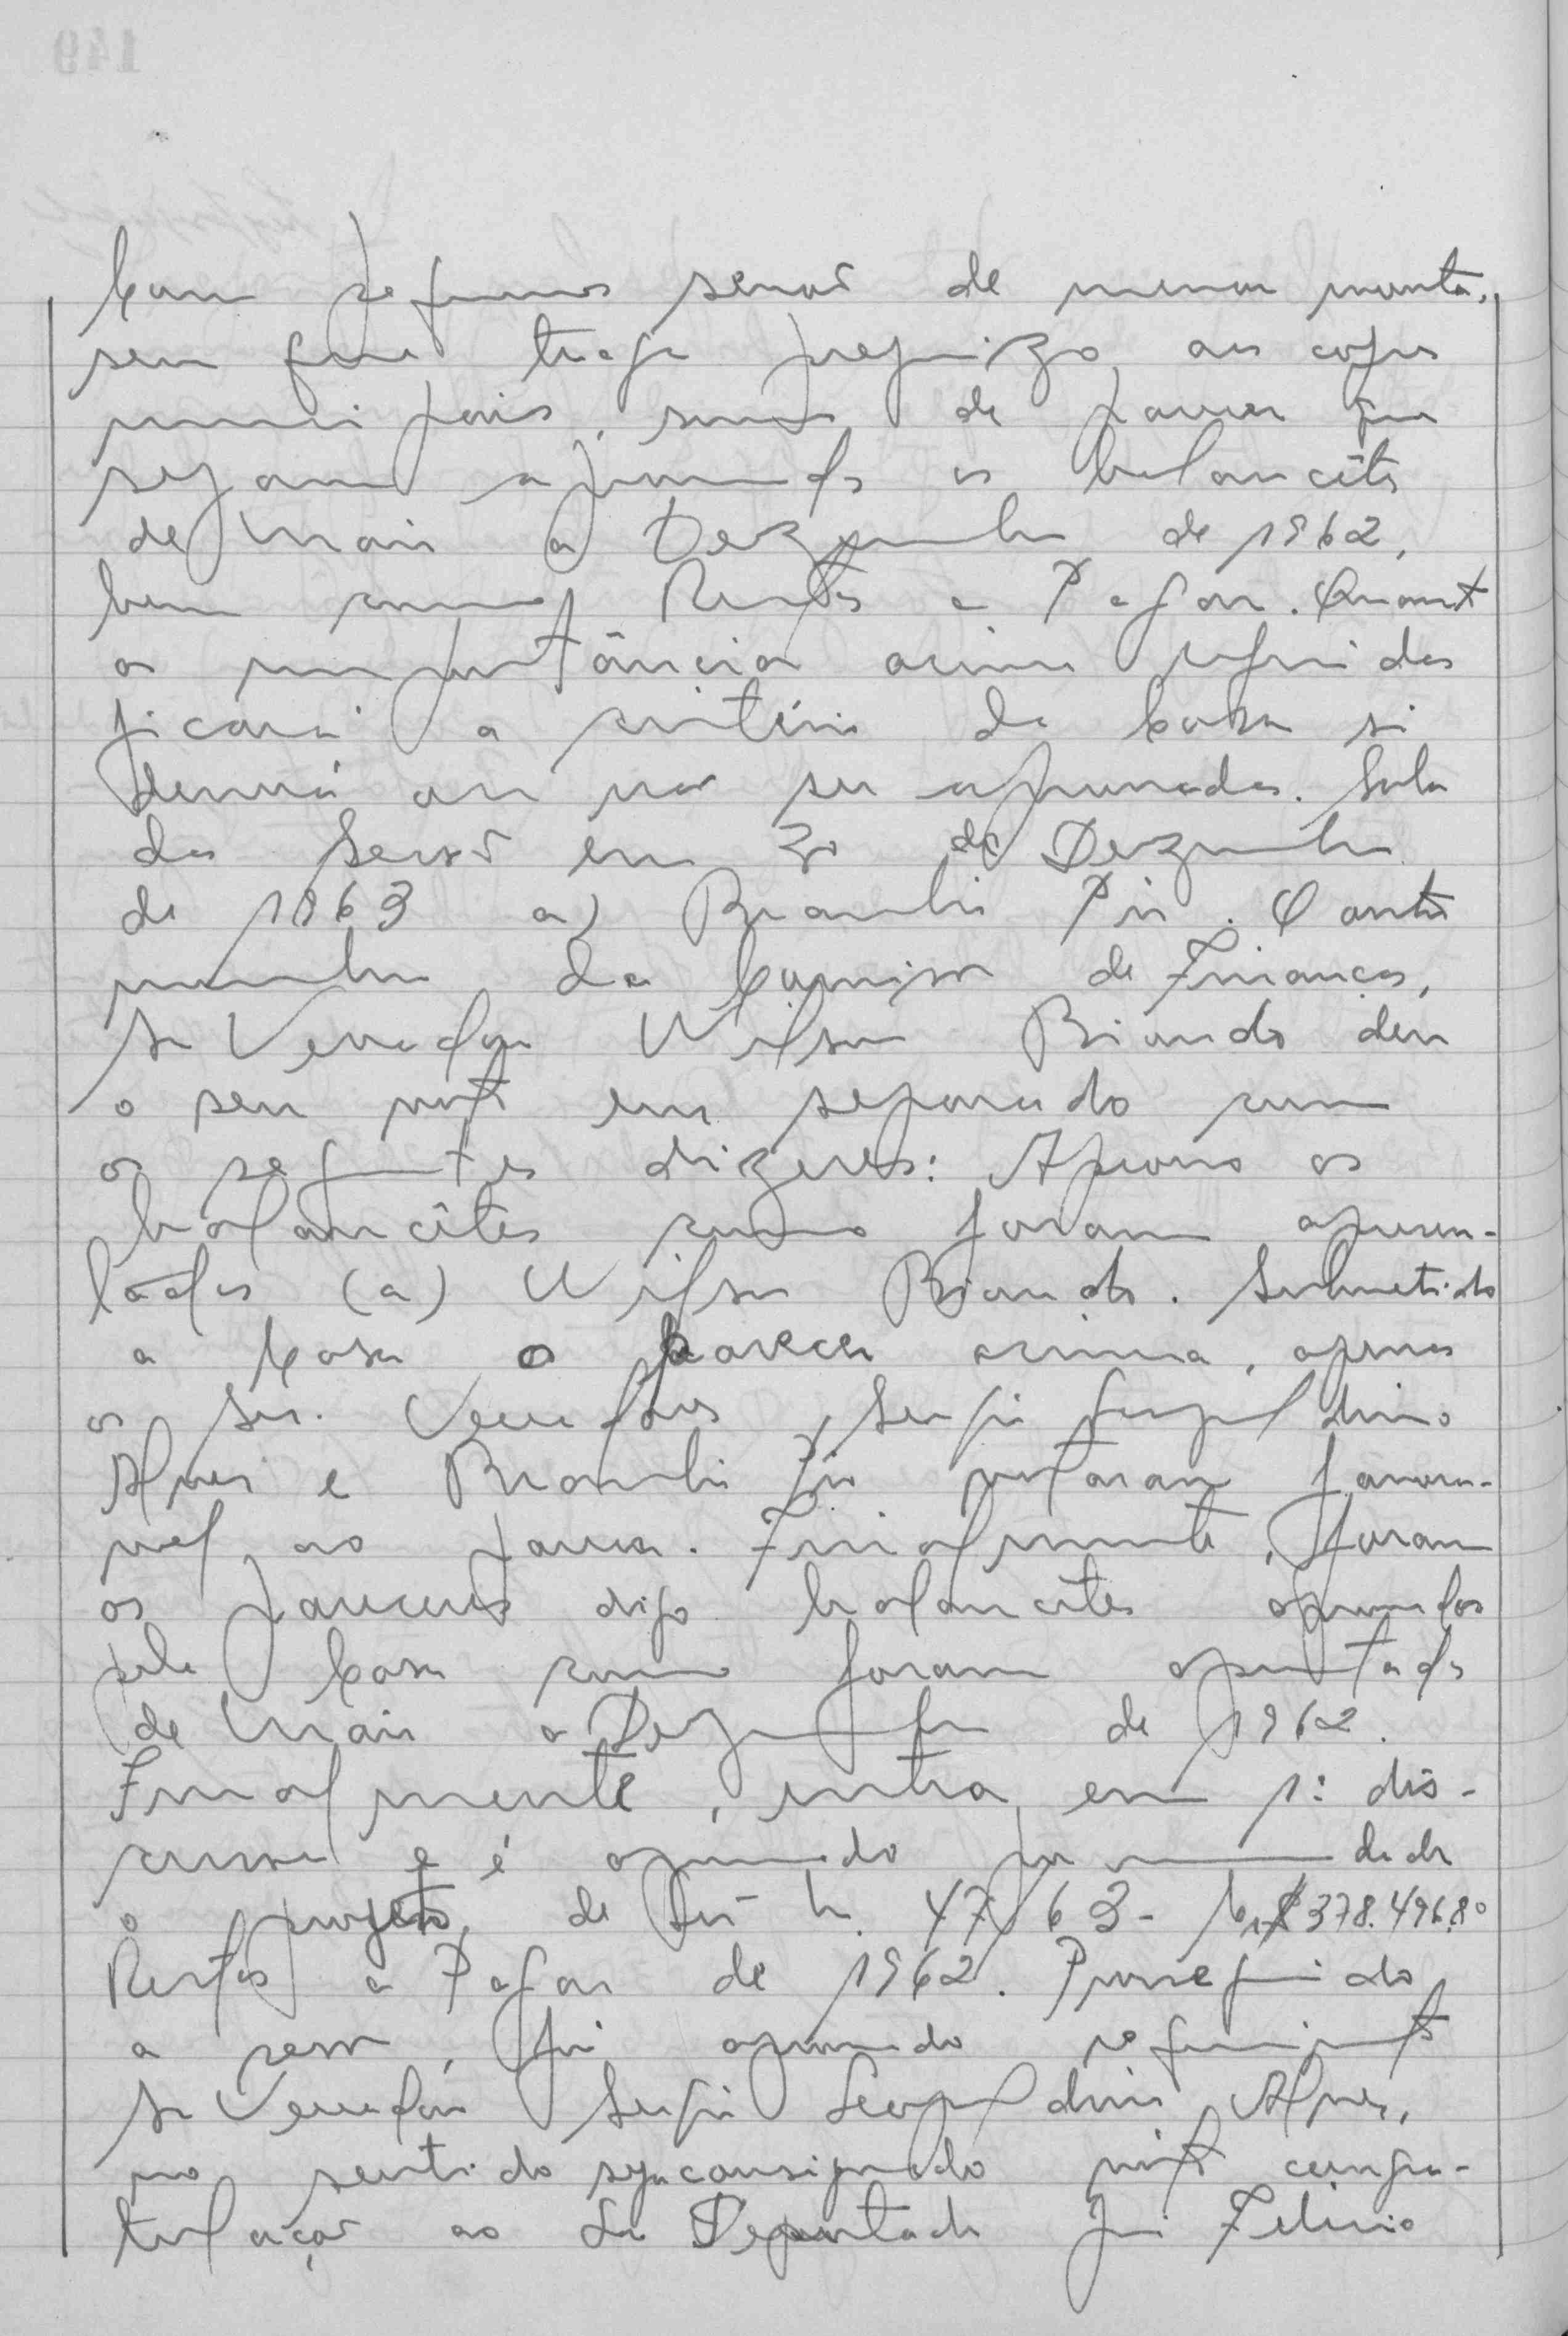 Com pequenos senão de menor monta,
sem que traga prejuizo aos cofres
municipais, somos de parecer que
sejam aprovados os balancêtes
de Maio a Dezembro de 1962,
bem como Restos a Pagar. Quanto
as importâncias acima referidas
ficará a critério da Casa si
deverá ou não ser aprovadas. Sala
das Sessões em 30 de Dezembro
de 1963 a) Bramlio Pio. O outro
membro da Comissão de Finanças,
Sr Vereador Wilson Biondo deu
o seu voto em separado com
os seguintes dizeres: Aprovo os
balancêtes como foram apresen-
tados (a) Wilson Biondo. Submetido
a Casa o parecer acima, apenas
os Srs. Vereadores Sergio Leopoldino
Alves e Bramlio Pio votaram favora-
vel ao parecer. Finalmente, foram
os pareceres digo balancetes aprovados
pela Casa como foram apresentados
de Maio a Dezembro de 1962.
Finalmente, entra em 1ª dis-
cussão e é aprovado por unanimidade
o projeto de Lei n. 47/63 - Cr$378.496,80
Restos a Pagar de 1962. Prosseguindo
a sessão, foi aprovado requerimento
Sr Vereador Sergio Leopoldino Alves,
no sentido seja consignado voto congra-
tulação ao Sr Deputado Felicio